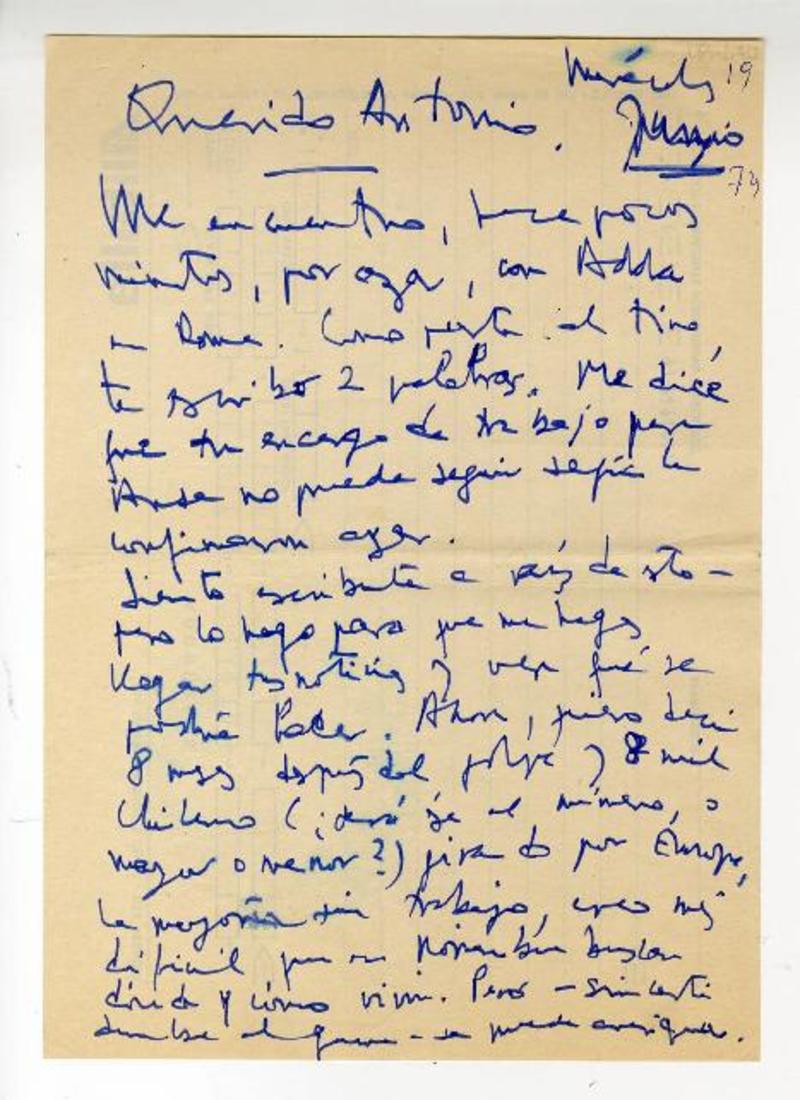 Miércoles 19
Querido Antonio.
74
Me encuentro, hace pocos
minutos, por azar, con Adda
en Roma. Como parte al tiro,
te escribo 2 palabras. Me dice
que tu encargo de trabajo para
Ansa no puede seguir según le
confirmaron ayer.
Siento escribirte a raíz de esto -
pero lo hago para que me hagas
llegar tus noticias y ver qué se
podría hacer. Ahora, quiero decir
8 meses después del golpe y 8 mil
chilenos (¿será ése el número, o
mayor o menor?) girando por Europa,
la mayoría sin trabajo, creo más
difícil que en Noviembre buscar
dónde y cómo vivir. Pero -
- se puede averiguar.